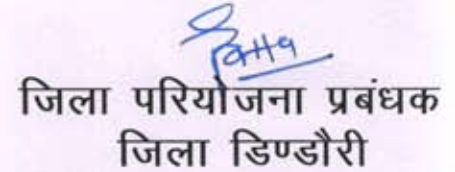 जिला परियोजना प्रबंधक
जिला डिण्डौरी